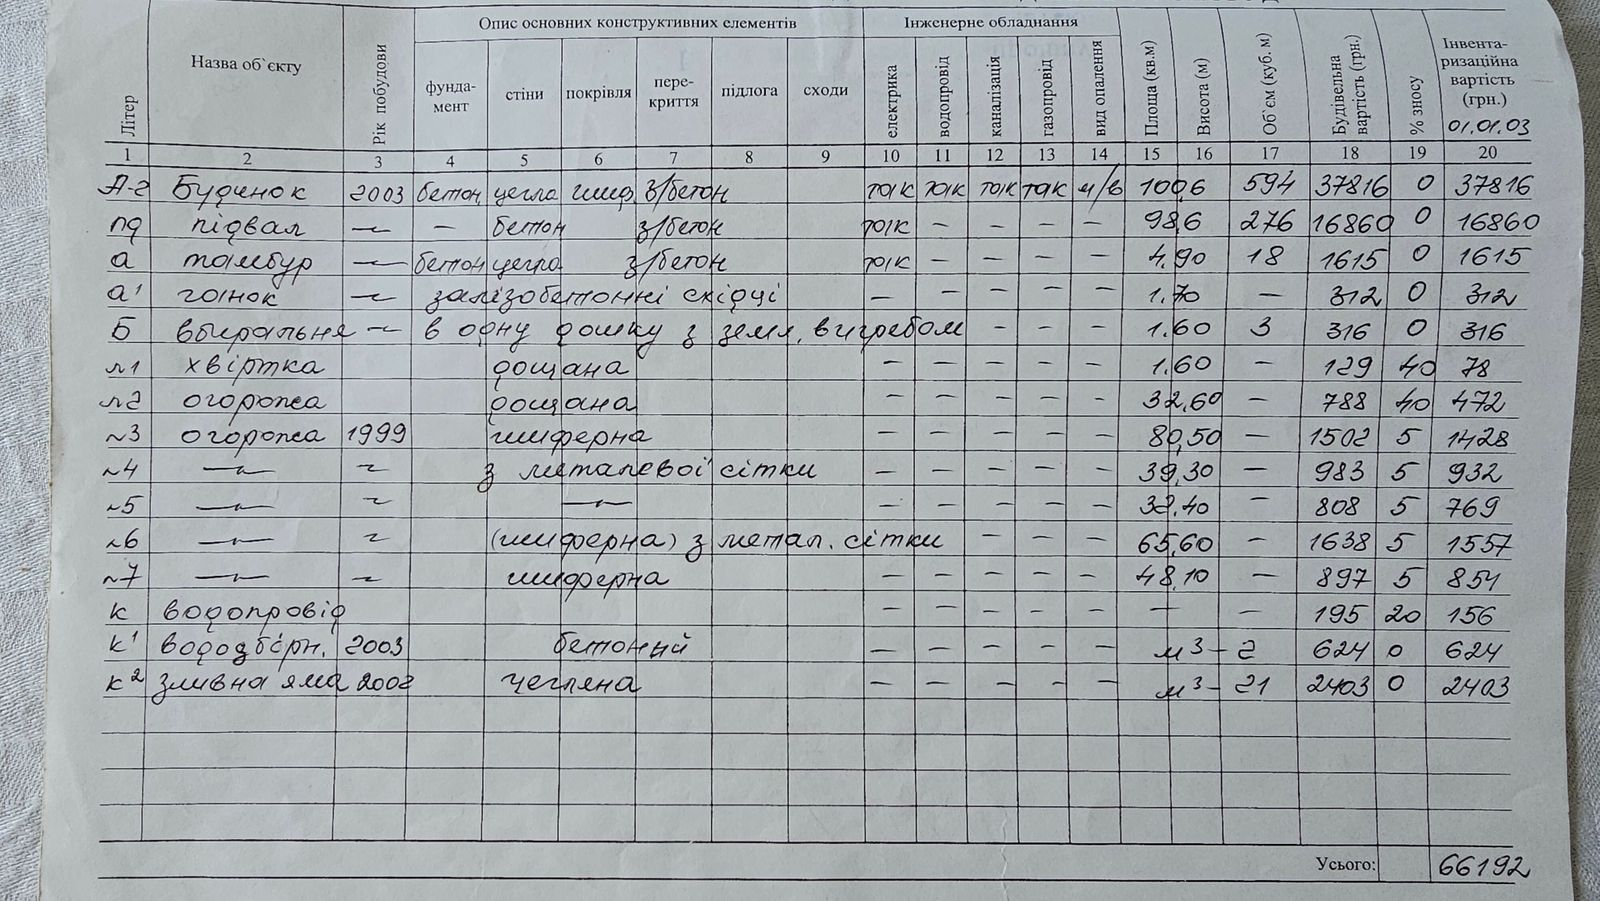 Опис основних конструктивних елементів Інженерне обладнання
Літер Назва об`єкту Рік побудови фунда-мент стіни покрівля пере-криття підлога сходи електрика водопровід каналізація газопровід вид опалення Площа (кв.м) Висота (м) Об`єм (куб. м) Будівельна вартість (грн.) % зносу Інвента-ризаційна вартість (грн.) 01.01.03
1 2 3 4 5 6 7 8 9 10 11 12 13 14 15 16 17 18 19 20
А-2 Будинок 2003 бетон цегла шиф. з/бетон так так так так м/в 100,6 594 37816 0 37816
пд підвал — – бетон з/бетон так – – – – 98,6 276 16860 0 16860
а тамбур — бетон цегла з/бетон так – – – – 4.90 18 1615 0 1615
а' ганок — залізобетонні східці – – – – – 1.70 – 312 0 312
Б вбиральня — в одну дошку з земл. вигребом – – – 1.60 3 316 0 316
л1 хвіртка дощана – – – – – 1.60 – 129 40 78
л2 огорожа дощана – – – – – 32,60 – 788 40 472
~3 огорожа 1999 шиферна – – – – – 80,50 – 1502 5 1428
~4 —"— ~ з металевої сітки – – – – – 39,30 – 983 5 932
~5 —"— ~ —"— – – – – – 32.40 – 808 5 769
~6 —"— ~ (шиферна) з метал. сітки – – – 65,60 – 1638 5 1557
~7 —"— ~ шиферна – – – – – 48,10 – 897 5 854
к водопровід – – – – – – – 195 20 156
к¹ водозбірн. 2003 бетонний – – – – – м³ – 2 624 0 624
к² зливна яма 2002 цегляна – – – – – м³ – 21 2403 0 2403
Усього: 66192